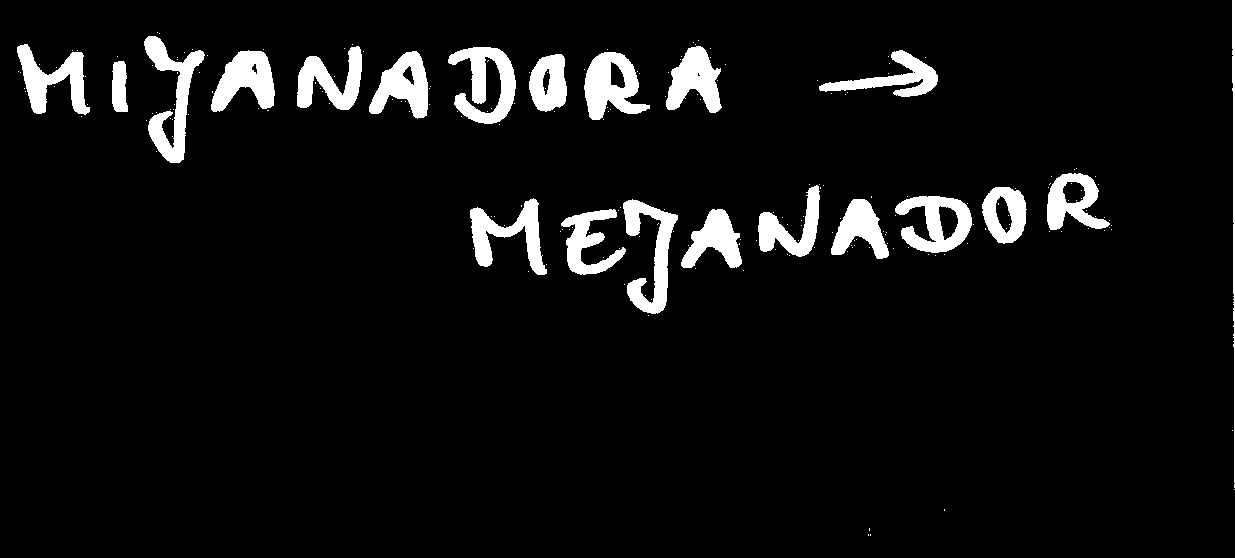 MIJANADORA →
MEJANADOR